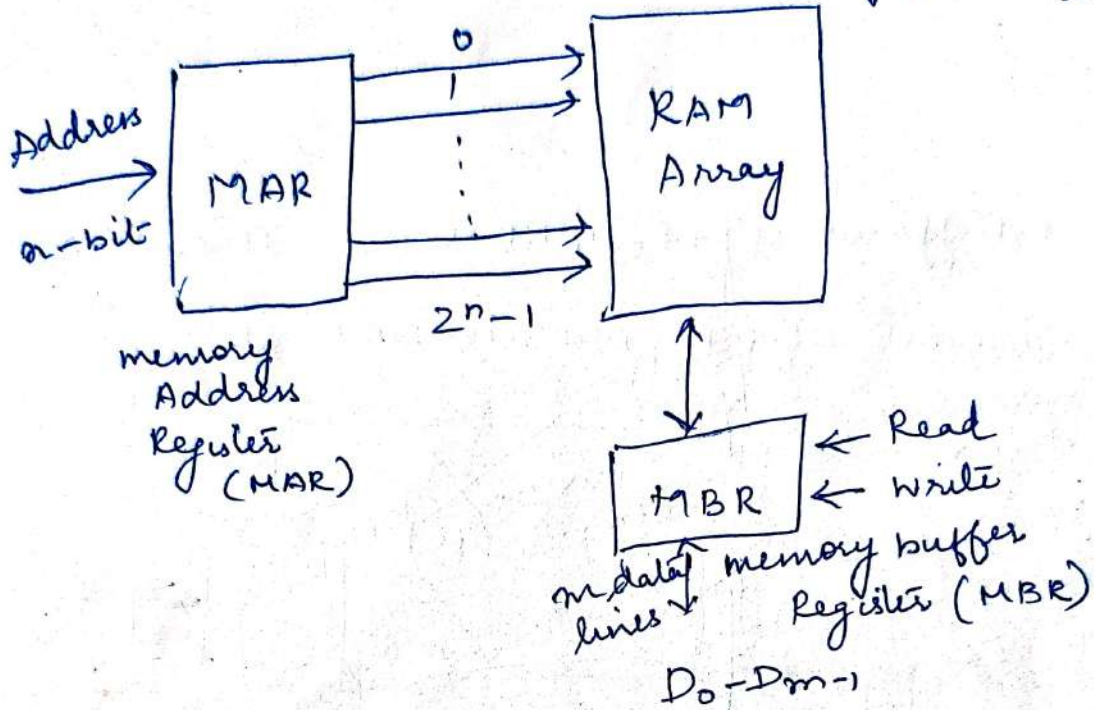 0
1
Address
n-bit
MAR
RAM
Array
2ⁿ-1
memory
Address
Register
(MAR)
MBR
← Read
← Write
m data
lines
memory buffer
Register (MBR)
D₀-Dm-1